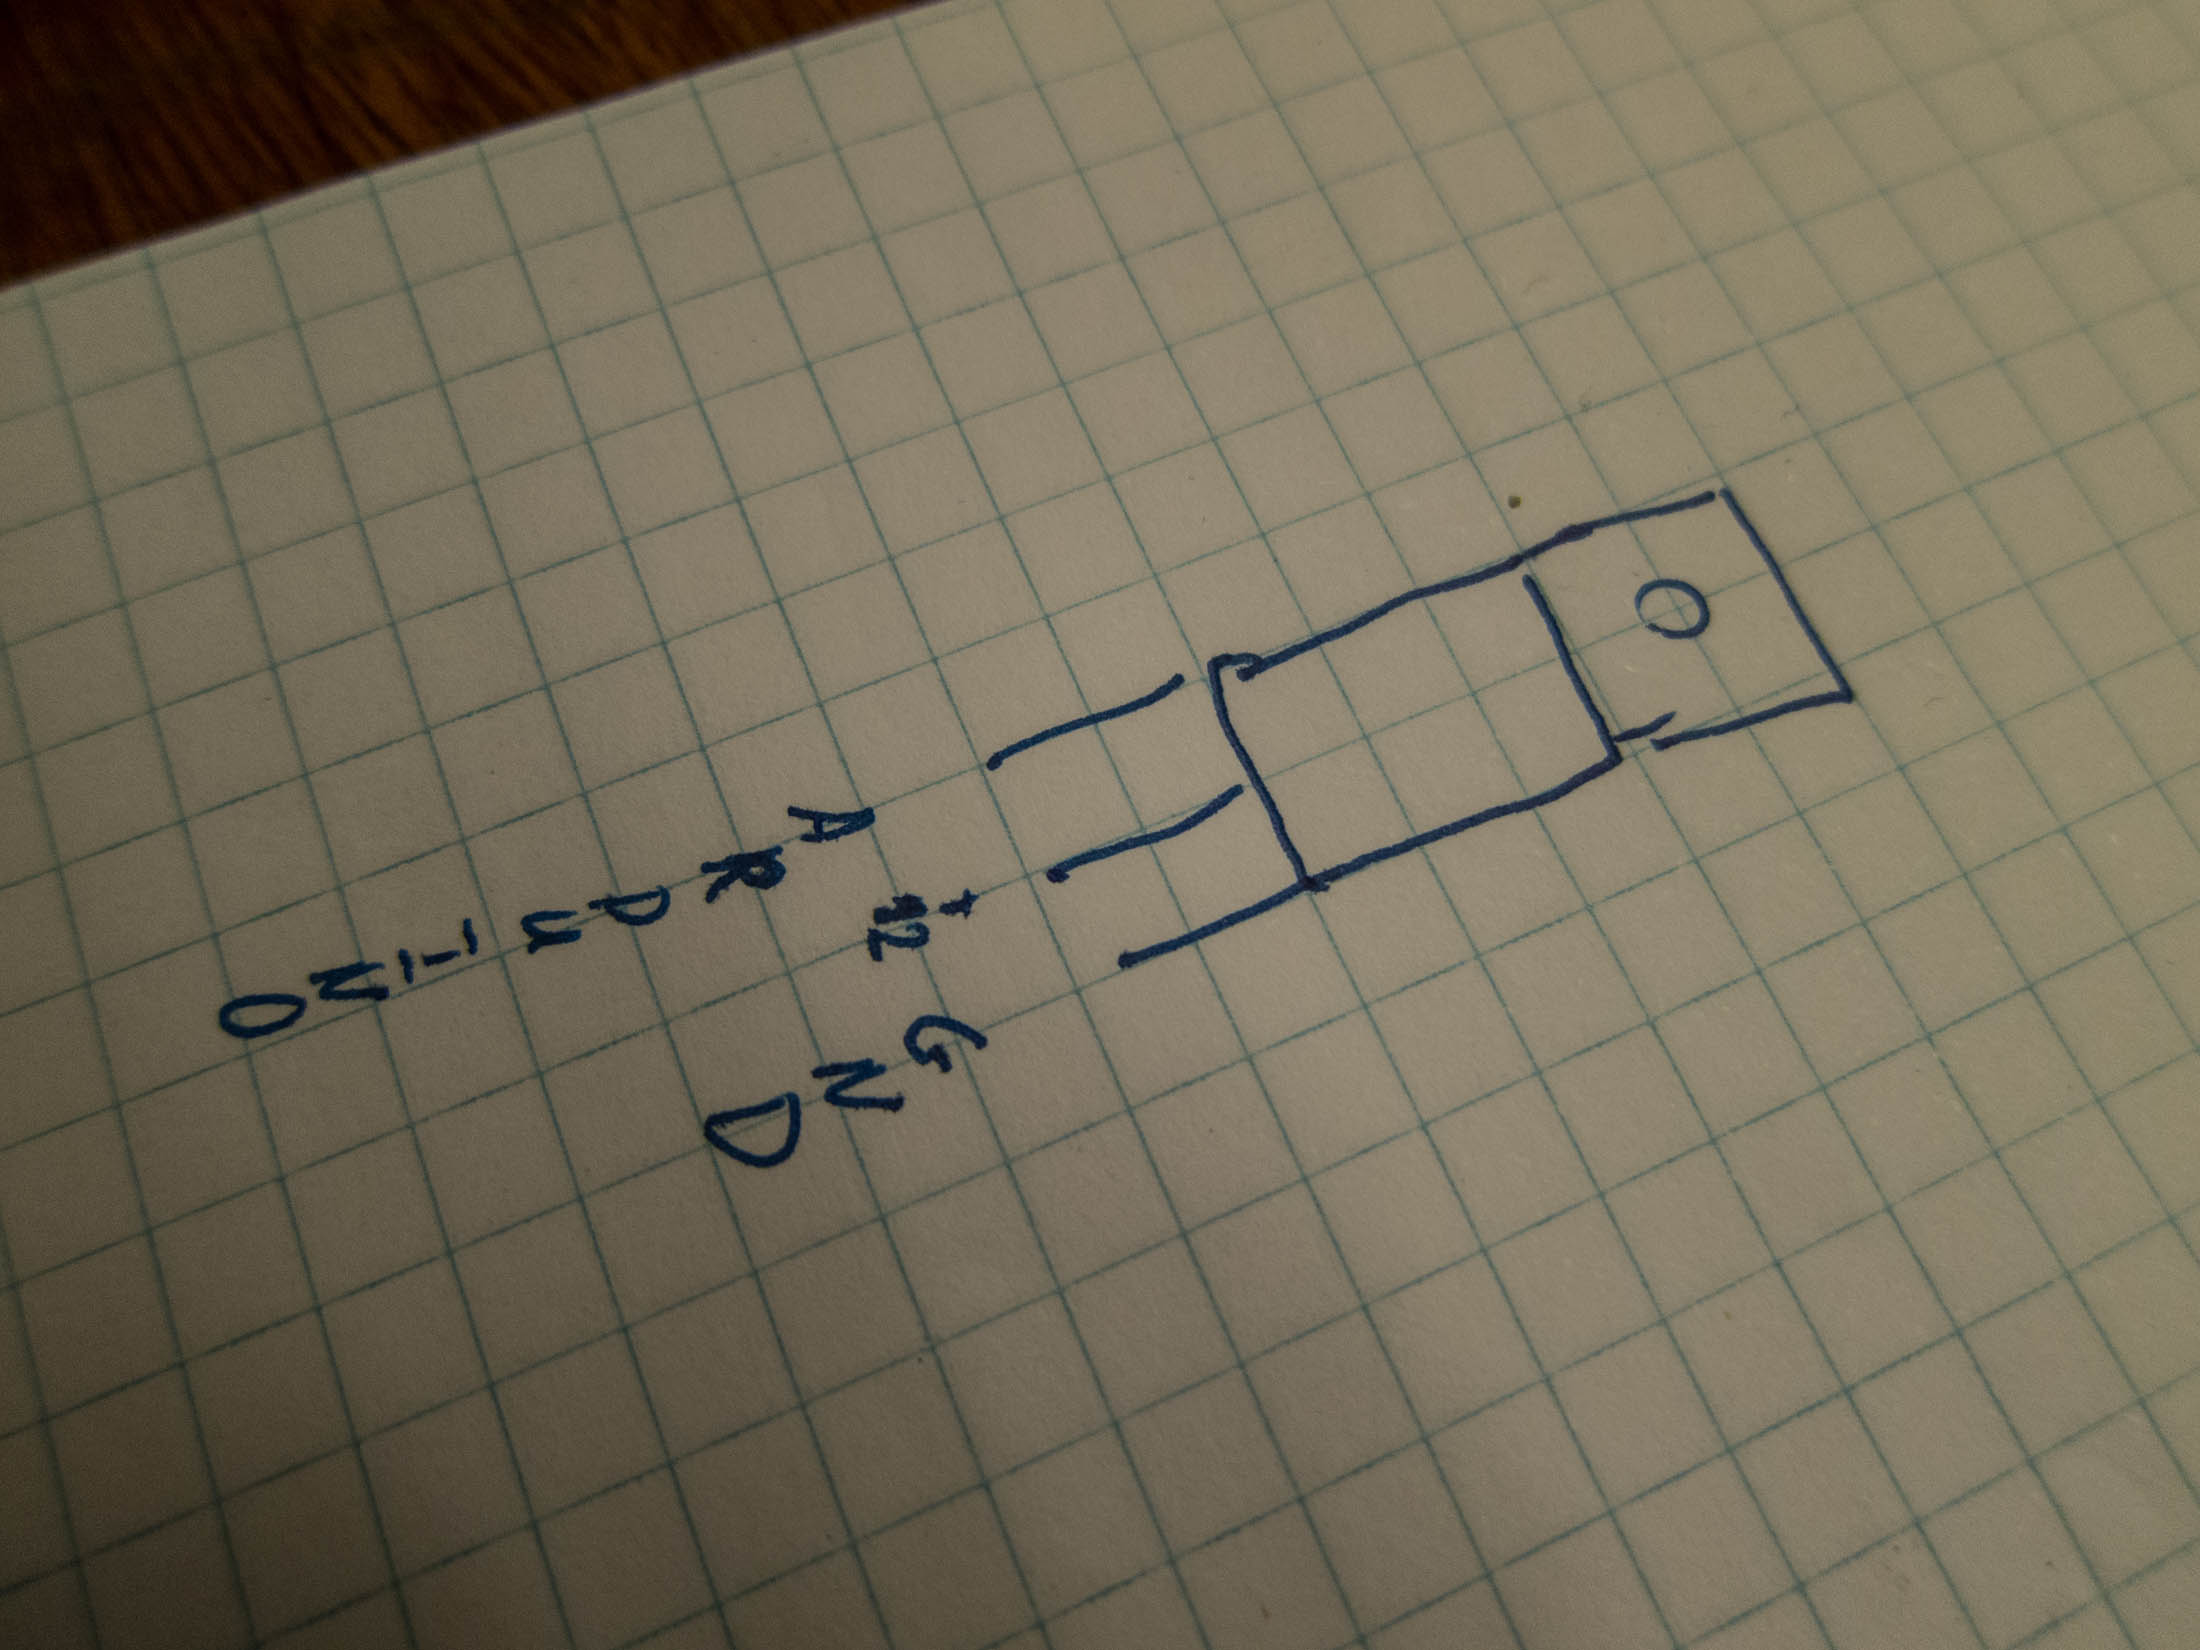 ARDUINO
+12
GND